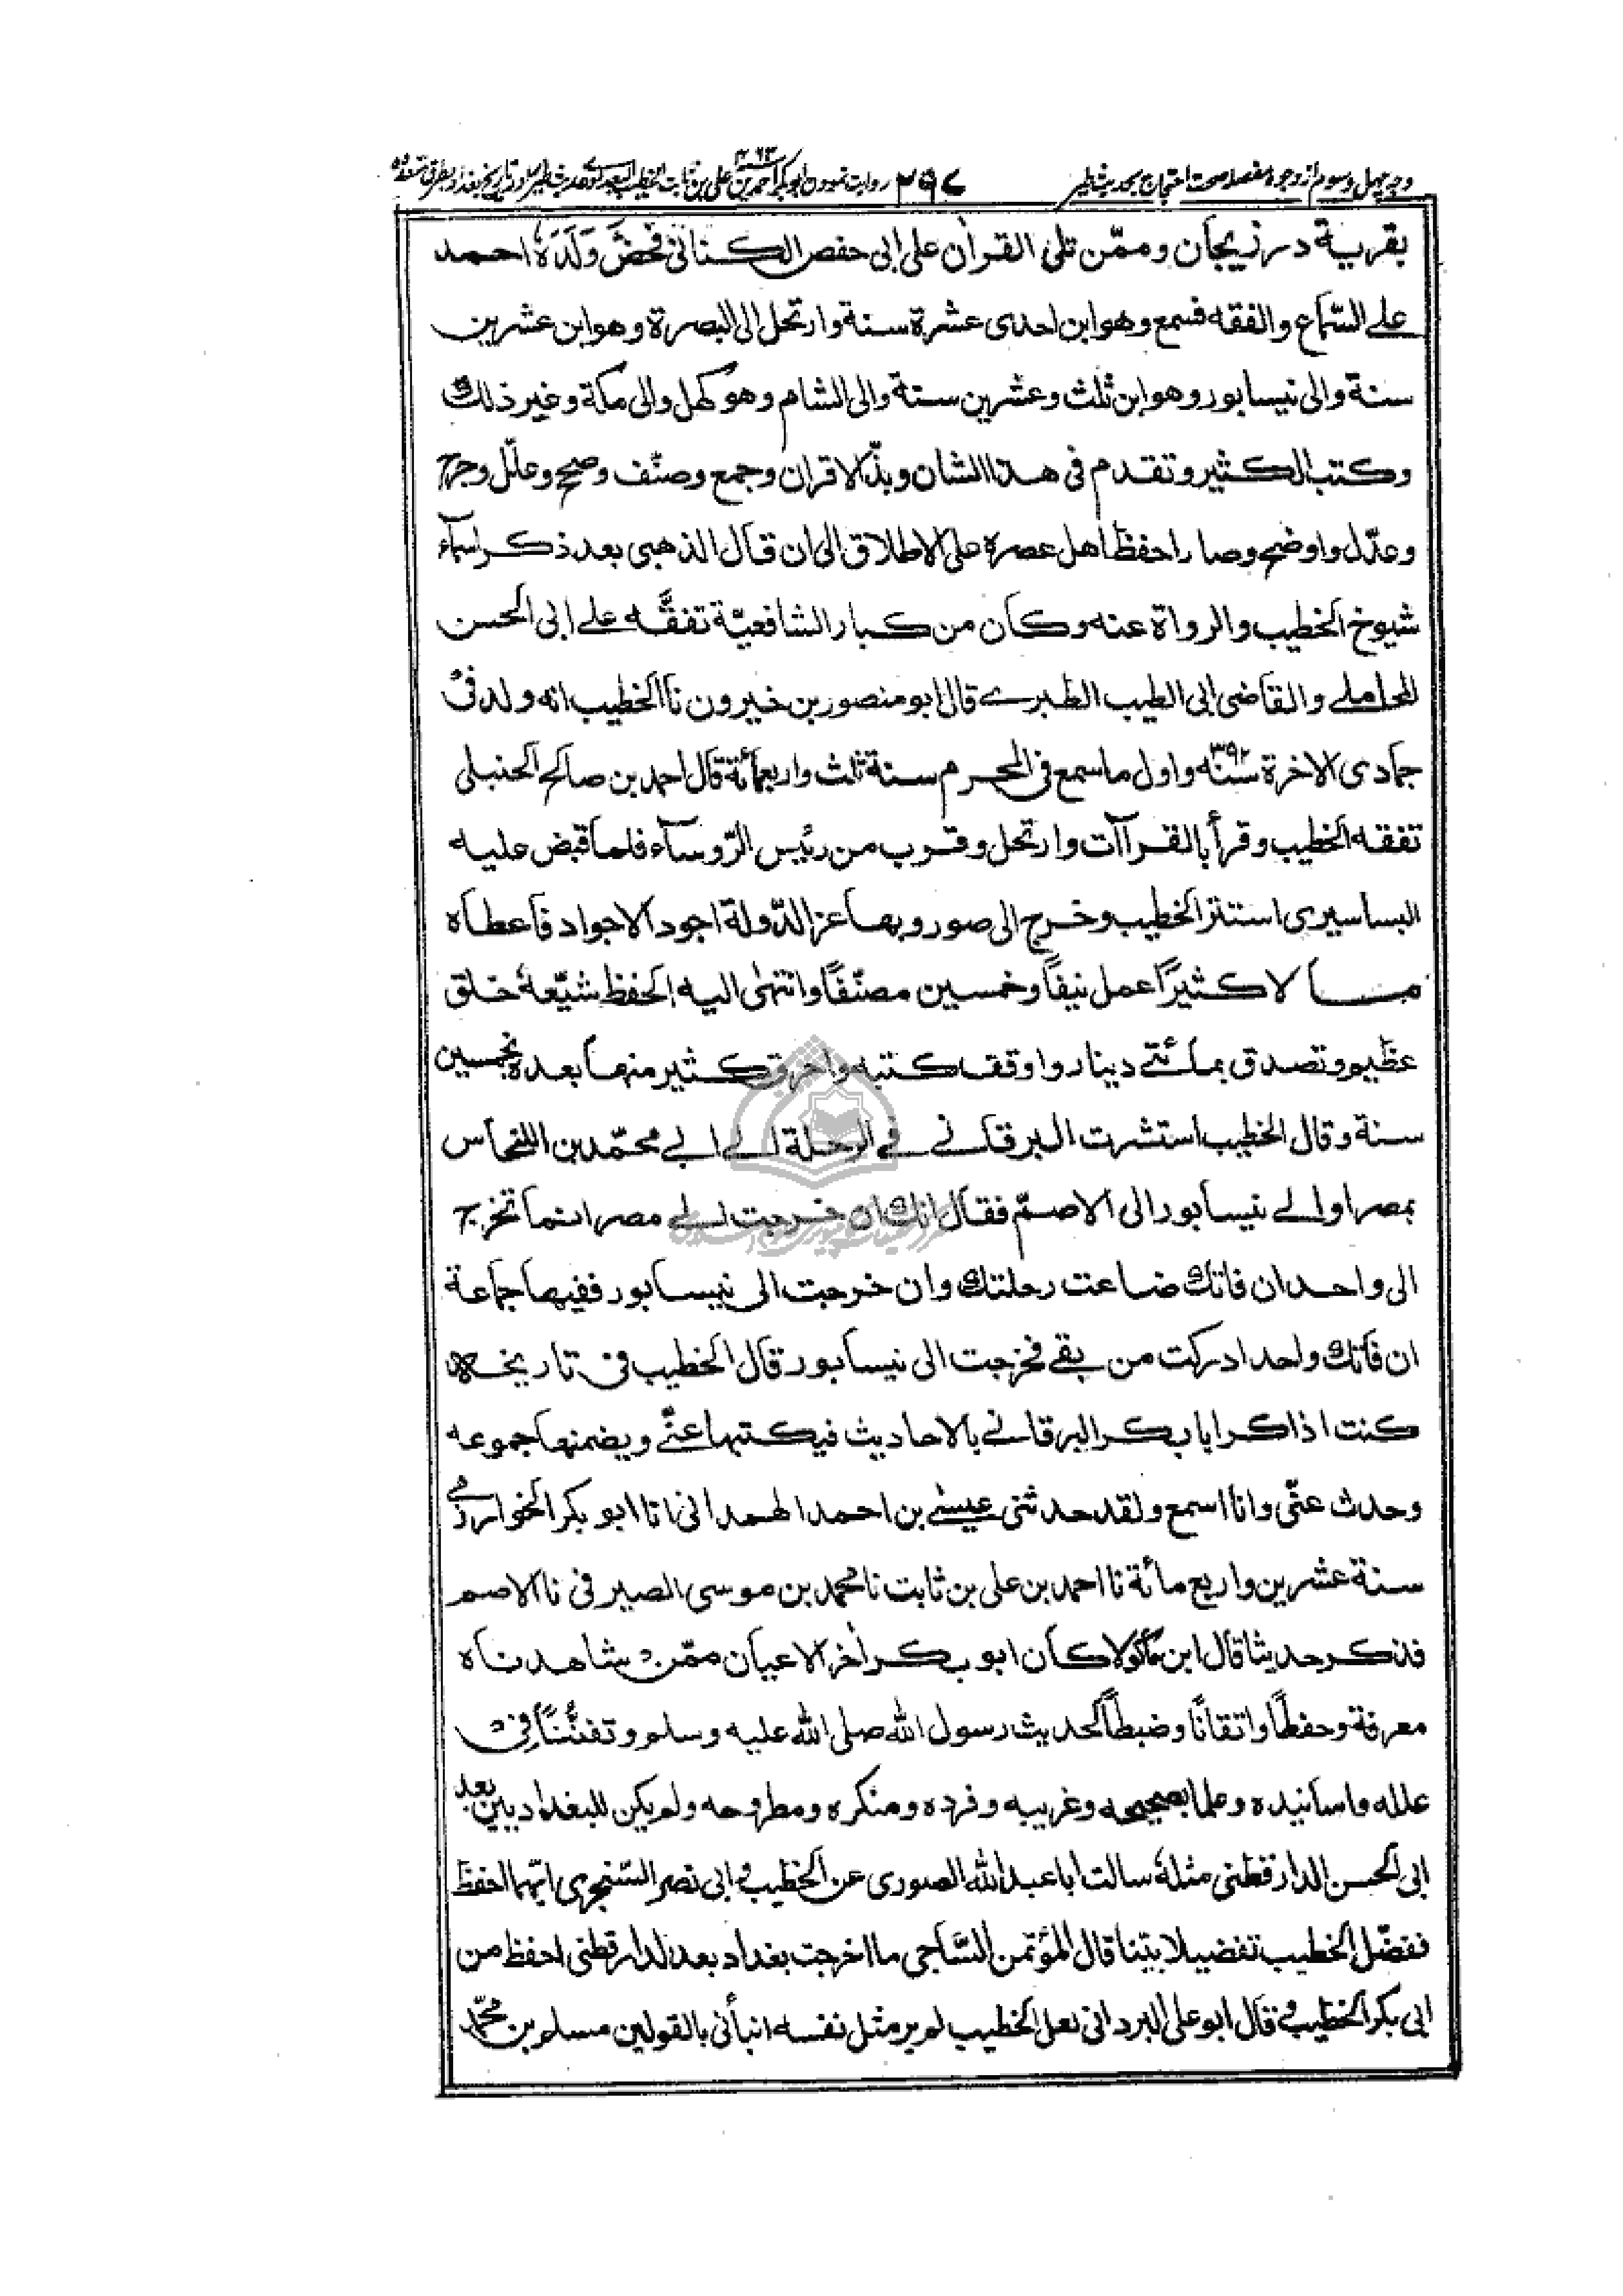 وجه چهل و سوم از وجوه مفصله صحت احتجاج بحدیث طیر ۲۹۷ روایت نمودن ابو بکر احمد بن علی بن ثابت الخطیب البغدادی حدیث طیر را در تاریخ بغداد بطرق متعدده
بقرية درزيجان وممّن تلى القرأن على ابى حفص الكنانى فحضّ وَلَدَهُ احمد
على السّماع والفقه فسمع وهو ابن احدى عشرة سنة وارتحل الى البصرة وهو ابن عشرين
سنة والى نيسابور وهو ابن ثلث وعشرين سنة والى الشام وهو كهل والى مكة وغير ذلك
وكتب الكثير وتقدم فى هذا الشان وبذّ الاقران وجمع وصنّف وصحح وعلّل وجرح
وعدّل واوضح وصار احفظ اهل عصره على الاطلاق الى ان قال الذهبى بعد ذكر اسمآء
شيوخ الخطيب والرواة عنه وكان من كبار الشافعيّة تفقّه على ابى الحسن
المحاملى والقاضى ابى الطيب الطبرے قال ابو منصور بن خيرون نا الخطيب انه ولد فى
جمادى الاخرة سنه ۳۹۲ واول ما سمع فى المحرم سنة ثلث واربعمائة قال احمد بن صالح الحنبلى
تفقه الخطيب وقرأ بالقراآت وارتحل وقرب من رئيس الرّوسآء فلما قبض عليه
البساسيرى استتر الخطيب وخرج الى صور وبها عز الدّولة اجود الاجواد فاعطاه
مـالا كثيرًا عمل نيفًا وخمسين مصنّفًا وانتهٰى اليه الحفظ شيّعهُ خلق
عظيم وتصدق بمائتے دينار واوقف كتبه واحرق كثير منها بعده بخمسين
سنة وقال الخطيب استشرت البرقانے فے الرحلة الے ابے محمّد بن النحاس
بمصر اوالے نيسابور الى الاصمّ فقال انك ان خرجت الے مصر انما تخرج
الى واحد ان فاتك ضاعت رحلتك وان خرجت الى نيسابور ففيها جماعة
ان فاتك واحد ادركت من بقے فخرجت الى نيسابور قال الخطيب فى تاريخه
كنت اذاكر ابا بكر البرقانے بالاحاديث فيكتبها عنّے ويضمنها جموعه
وحدث عنّى وانا اسمع ولقد حدثنى عيسٰے بن احمد الهمدانى انا ابو بكر الخوارزمے
سنة عشرين واربع مائة نا احمد بن على بن ثابت نا محمد بن موسى الصيرفى نا الاصم
فذكر حديثا قال ابن ماكولا كان ابو بكر أخر الاعيان ممّن شاهدناه
معرفة وحفظًا واتقانًا وضبطًا لحديث رسول الله صلى الله عليه وسلم وتفنُّنًا فى
علله واسانيده وعلما بصحيحه وغريبه وفرده ومنكره ومطروحه ولم يكن للبغداديين بعد
ابى الحسن الدارقطنى مثلهُ سالت ابا عبد الله الصورى عن الخطيب و ابى نصر السّنجرى ايّهما احفظ
ففضّل الخطيب تفضيلا بيّنا قال المؤتمن السّاجى ما اخرجت بغداد بعد الدارقطنى احفظ من
ابى بكر الخطيب و قال ابو على البردانى لعل الخطيب لم ير مثل نفسه انبأنى بالقولين مسلم بن محمّد